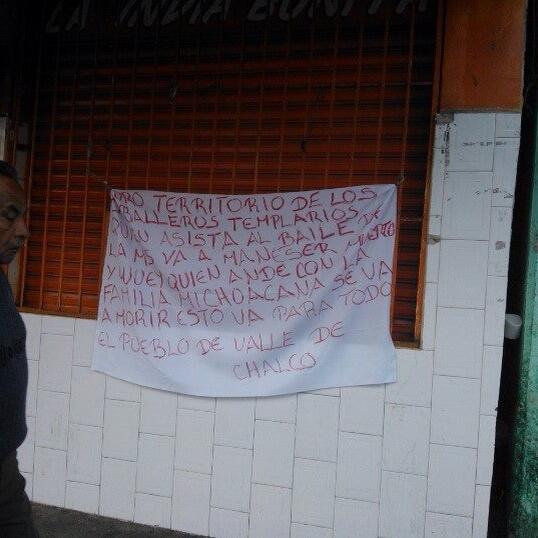 LA INDIA BONITA
PURO TERRITORIO DE LOS
CABALLEROS TEMPLARIOS
QUIEN ASISTA AL BAILE DE
LA MS VA A MANESER MUERTO
Y WUEY QUIEN ANDE CON LA
FAMILIA MICHOACANA SE VA
A MORIR ESTO VA PARA TODO
EL PUEBLO DE VALLE DE
CHALCO